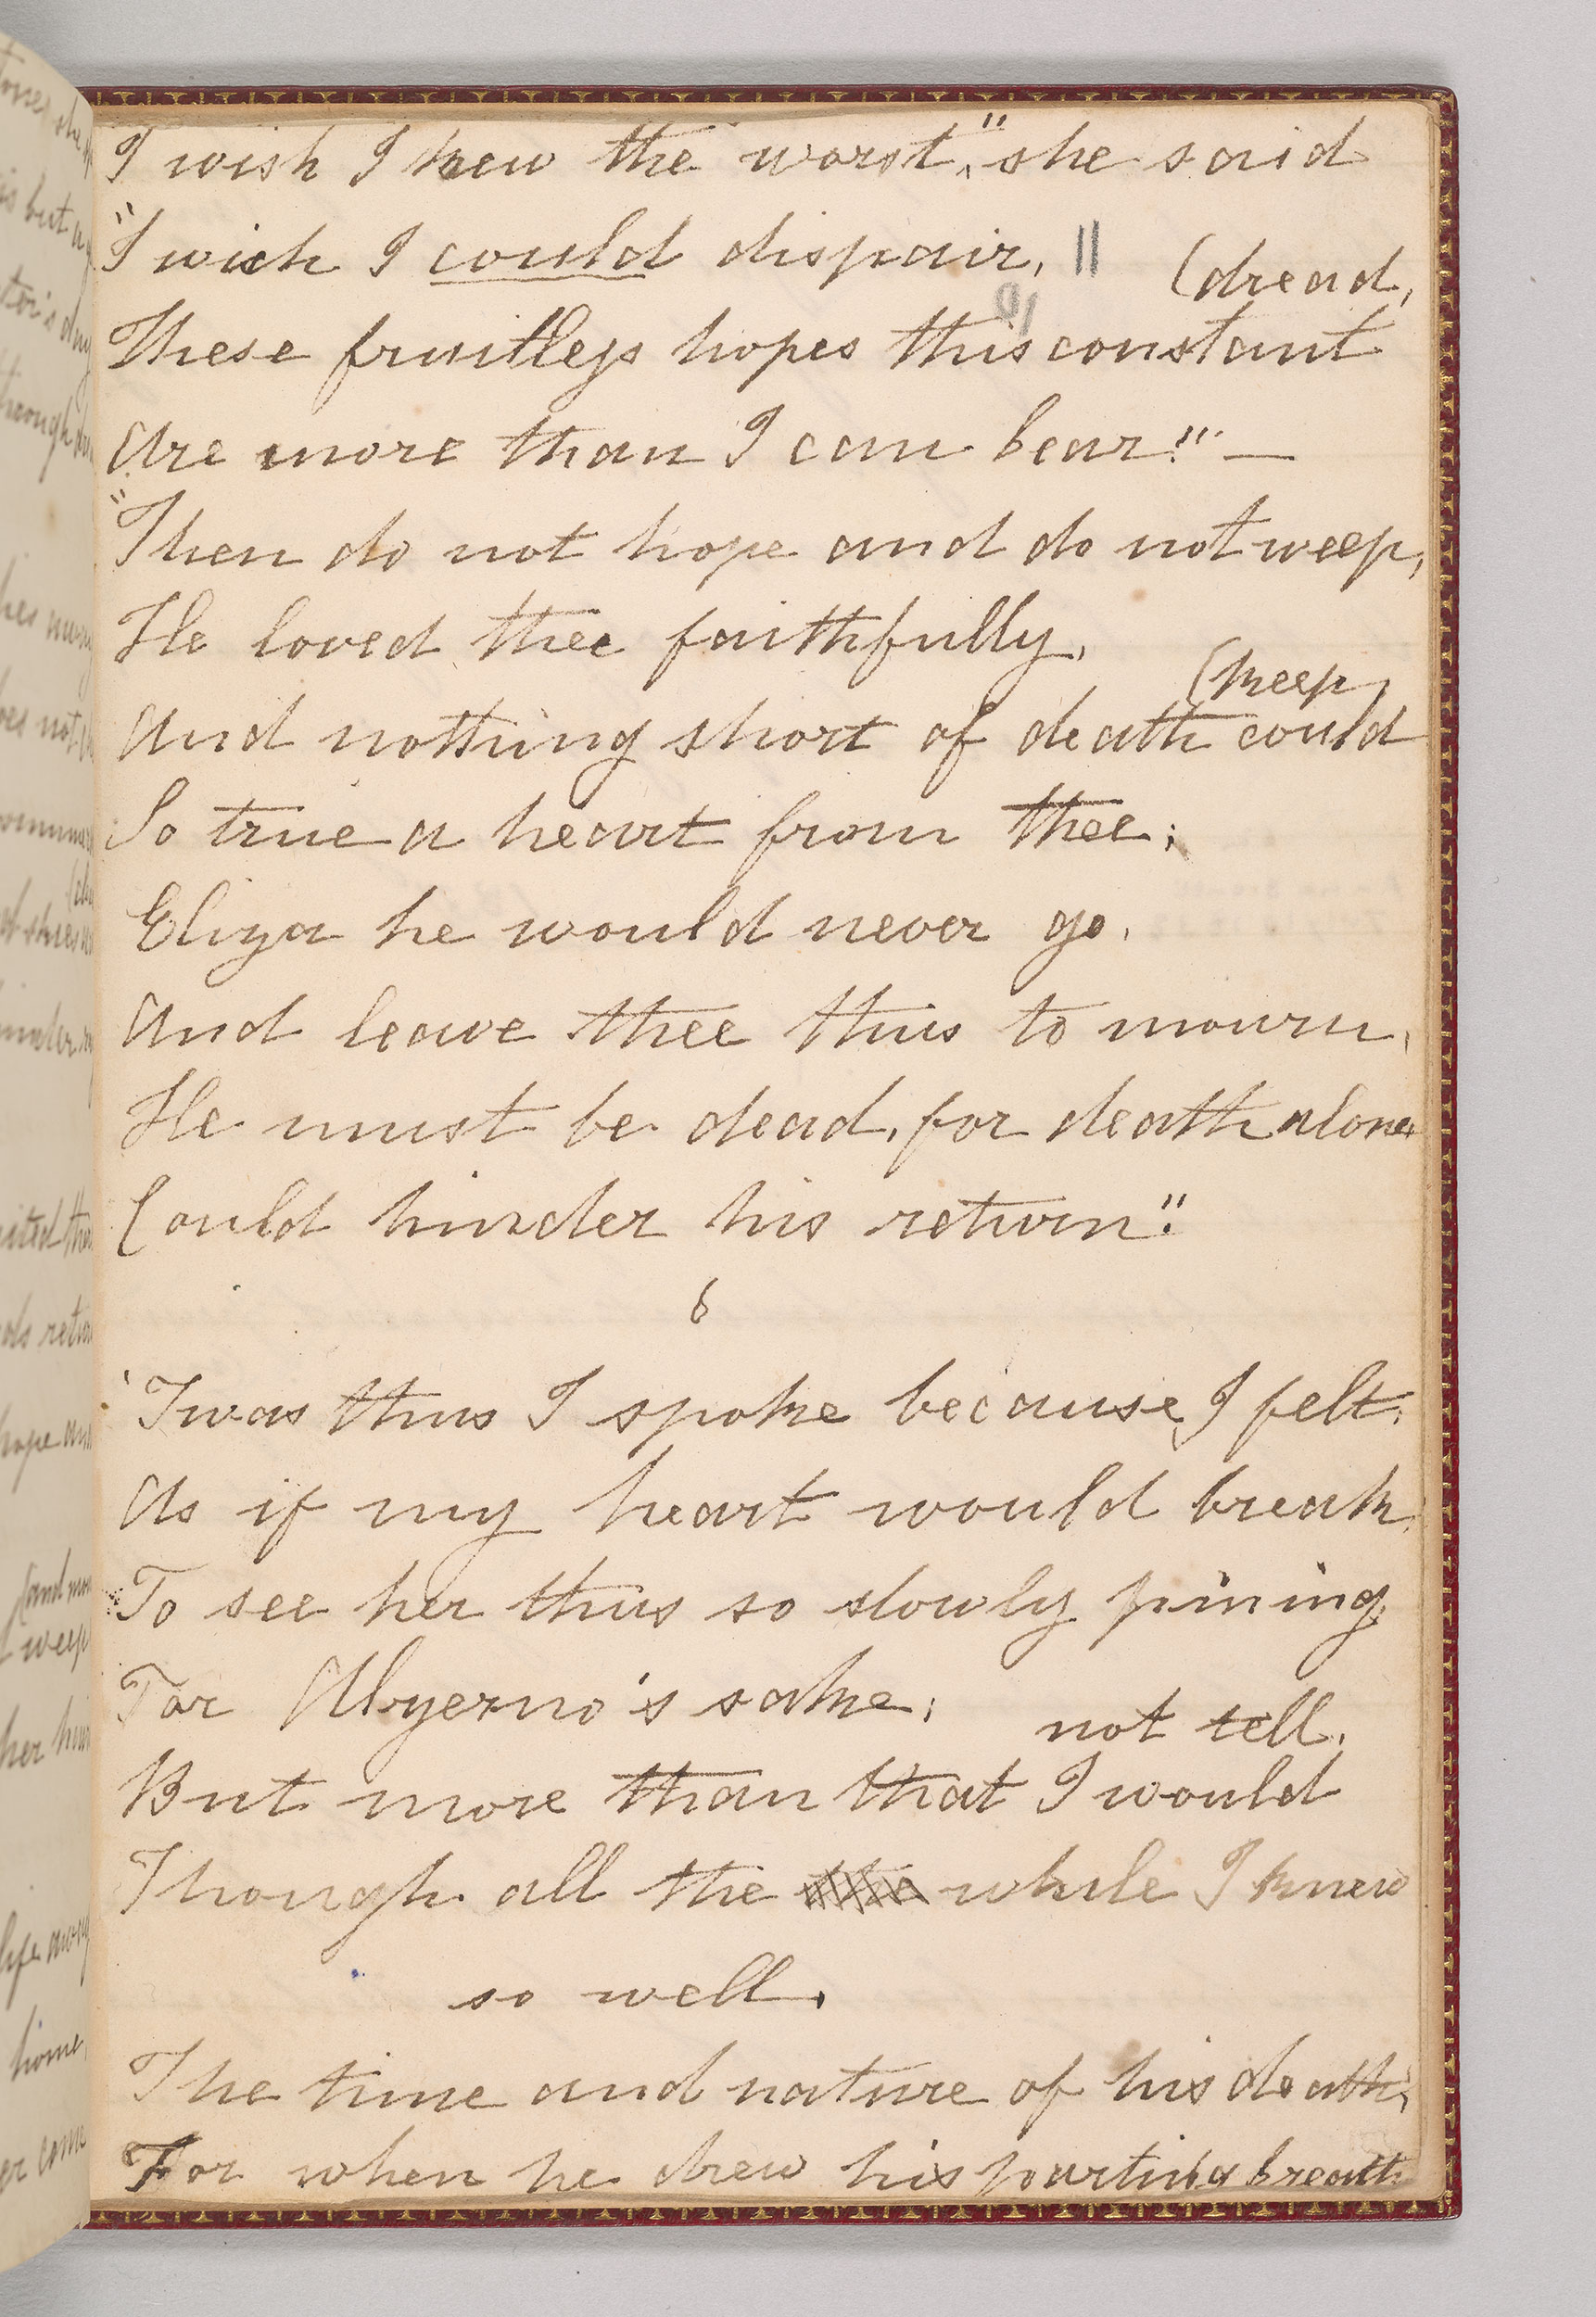 I wish I knew the worst," she said
"I wish I could dispair, ||
(dread,
These fruitless hopes this constant
Are more than I can bear!" —
"Then do not hope and do not weep,
He loved thee faithfully,
(keep,
And nothing short of death could
So true a heart from thee;
Eliza he would never go,
And leave thee thus to mourn,
He must be dead, for death alone
Could hinder his return".
6
'Twas thus I spoke because I felt,
As if my heart would break,
To see her thus so slowly pining
For Alzerno's sake;
not tell,
But more than that I would
Though all the while I knew
so well,
The time and nature of his death,
For when he drew his parting breath